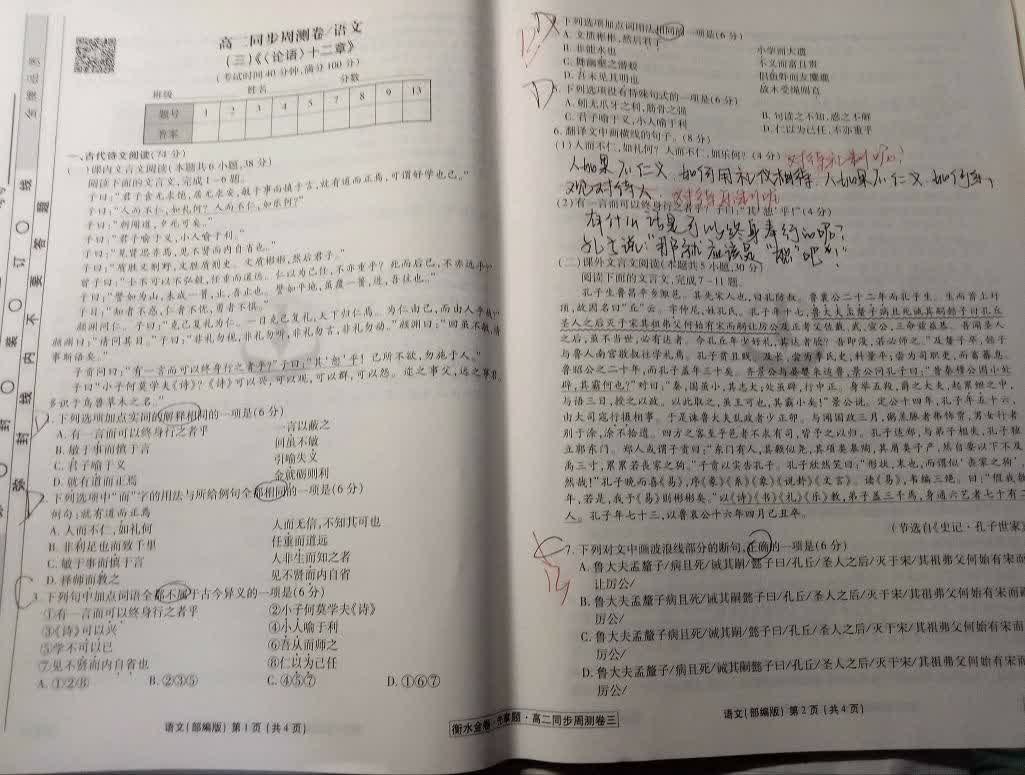 高二同步周测卷/语文
(三)《〈论语〉十二章》
(考试时间40分钟,满分100分)
班级 姓名 分数
题号 1 2 3 4 5 7 8 9 13
答案
一、古代诗文阅读(74分)
(一)课内文言文阅读(本题共6小题,38分)
阅读下面的文言文,完成1~6题。
子曰:“君子食无求饱,居无求安,敏于事而慎于言,就有道而正焉,可谓好学也已。”
子曰:“人而不仁,如礼何?人而不仁,如乐何?”
子曰:“朝闻道,夕死可矣。”
子曰:“君子喻于义,小人喻于利。”
子曰:“见贤思齐焉,见不贤而内自省也。”
子曰:“质胜文则野,文胜质则史。文质彬彬,然后君子。”
曾子曰:“士不可以不弘毅,任重而道远。仁以为己任,不亦重乎?死而后已,不亦远乎?”
子曰:“譬如为山,未成一篑,止,吾止也。譬如平地,虽覆一篑,进,吾往也。”
子曰:“知者不惑,仁者不忧,勇者不惧。”
颜渊问仁。子曰:“克己复礼为仁。一日克己复礼,天下归仁焉。为仁由己,而由人乎哉?”
颜渊曰:“请问其目。”子曰:“非礼勿视,非礼勿听,非礼勿言,非礼勿动。”颜渊曰:“回虽不敏,请
事斯语矣。”
子贡问曰:“有一言而可以终身行之者乎?”子曰:“其‘恕’乎!己所不欲,勿施于人。”
子曰:“小子何莫学夫《诗》?《诗》可以兴,可以观,可以群,可以怨。迩之事父,远之事君,
多识于鸟兽草木之名。”
下列选项加点实词的解释相同的一项是(6分)
A. 有一言而可以终身行之者乎 一言以蔽之
B. 敏于事而慎于言 回虽不敏
C. 君子喻于义 引喻失义
D. 就有道而正焉 金就砺则利
2. 下列选项中“而”字的用法与所给例句全都相同的一项是(6分)
例句:就有道而正焉
A. 人而不仁,如礼何 人而无信,不知其可也
B. 非利足也而致千里 任重而道远
C. 敏于事而慎于言 人非生而知之者
D. 择师而教之 见不贤而内自省
3. 下列句中加点词语全都不属于古今异义的一项是(6分)
①有一言而可以终身行之者乎 ②小子何莫学夫《诗》
③《诗》可以兴 ④小人喻于利
⑤学不可以已 ⑥吾从而师之
⑦见不贤而内自省也 ⑧仁以为己任
A. ①②⑧ B. ②③⑤ C. ④⑤⑦ D. ①⑥⑦
语文(部编版) 第1页(共4页)
下列选项加点词用法相同的一项是(6分)
A. 文质彬彬,然后君子 小学而大遗
B. 非能水也 不义而富且贵
C. 舞幽壑之潜蛟 侣鱼虾而友麋鹿
D. 吾未见其明也 故木受绳则直
5. 下列选项没有特殊句式的一项是(6分)
A. 蚓无爪牙之利,筋骨之强 B. 句读之不知,惑之不解
C. 君子喻于义,小人喻于利 D. 仁以为己任,不亦重乎
6. 翻译文中画横线的句子。(8分)
(1)人而不仁,如礼何?人而不仁,如乐何?(4分)
对待礼制呢?
人如果不仁义,如何用礼仪相待,人如果不仁义,如何
对待乐制呢
(2)有一言而可以终身行之者乎?子曰:“其‘恕’乎!”(4分)
有什么话是可以终身奉行的呢?
孔子说:“那就应该是“恕”吧!”
(二)课外文言文阅读(本题共5小题,30分)
阅读下面的文言文,完成7~11题。
孔子生鲁昌平乡陬邑。其先宋人也,曰孔防叔。鲁襄公二十二年而孔子生。生而首上圩
顶,故因名曰“丘”云。字仲尼,姓孔氏。孔子年十七,鲁大夫孟釐子病且死诫其嗣懿子曰孔丘
圣人之后灭于宋其祖弗父何始有宋而嗣让厉公及正考父佐戴、武、宣公,三命兹益恭。吾闻圣人
之后,虽不当世,必有达者。今孔丘年少好礼,其达者欤?吾即没,若必师之。”及釐子卒,懿子
与鲁人南宫敬叔往学礼焉。孔子贫且贱。及长,尝为季氏史,料量平;尝为司职吏,而畜蕃息。
鲁昭公之二十年,而孔子盖年三十矣。齐景公与晏婴来适鲁,景公问孔子曰:“昔秦穆公国小处
辟,其霸何也?”对曰:“秦,国虽小,其志大;处虽辟,行中正。身举五羖,爵之大夫,起累绁之中,
与语三日,授之以政。以此取之,虽王可也,其霸小矣!”景公说。定公十四年,孔子年五十六,
由大司寇行摄相事。于是诛鲁大夫乱政者少正卯。与闻国政三月,粥羔豚者弗饰贾,男女行者
别于涂,涂不拾遗。四方之客至乎邑者不求有司,皆予之以归。孔子适郑,与弟子相失,孔子独
立郭东门。郑人或谓子贡曰:“东门有人,其颡似尧,其项类皋陶,其肩类子产,然自要以下不及
禹三寸,累累若丧家之狗。”子贡以实告孔子。孔子欣然笑曰:“形状,末也,而谓似‘丧家之狗’,
然哉!”孔子晚而喜《易》,序《彖》《系》《象》《说卦》《文言》。读《易》,韦编三绝。曰:“假我数
年,若是,我于《易》则彬彬矣。”以《诗》《书》《礼》《乐》教,弟子盖三千焉,身通六艺者七十有二
人。孔子年七十三,以鲁哀公十六年四月己丑卒。
(节选自《史记·孔子世家》
7. 下列对文中画波浪线部分的断句,正确的一项是(6分)
A. 鲁大夫孟釐子/病且死/诫其嗣/懿子曰/孔丘/圣人之后/灭于宋/其祖弗父何始有宋
让厉公/
B. 鲁大夫孟釐子病且死/诫其嗣懿子曰/孔丘/圣人之后/灭于宋/其祖弗父何始有宋而
厉公/
C. 鲁大夫孟釐子病且死/诫其嗣/懿子曰/孔丘/圣人之后/灭于宋/其祖弗父何始有宋而
厉公/
D. 鲁大夫孟釐子/病且死/诫其嗣懿子曰/孔丘/圣人之后/灭于宋/其祖弗父何始有宋而
厉公/
语文(部编版) 第2页(共4页)
衡水金卷·先享题·高二同步周测卷三